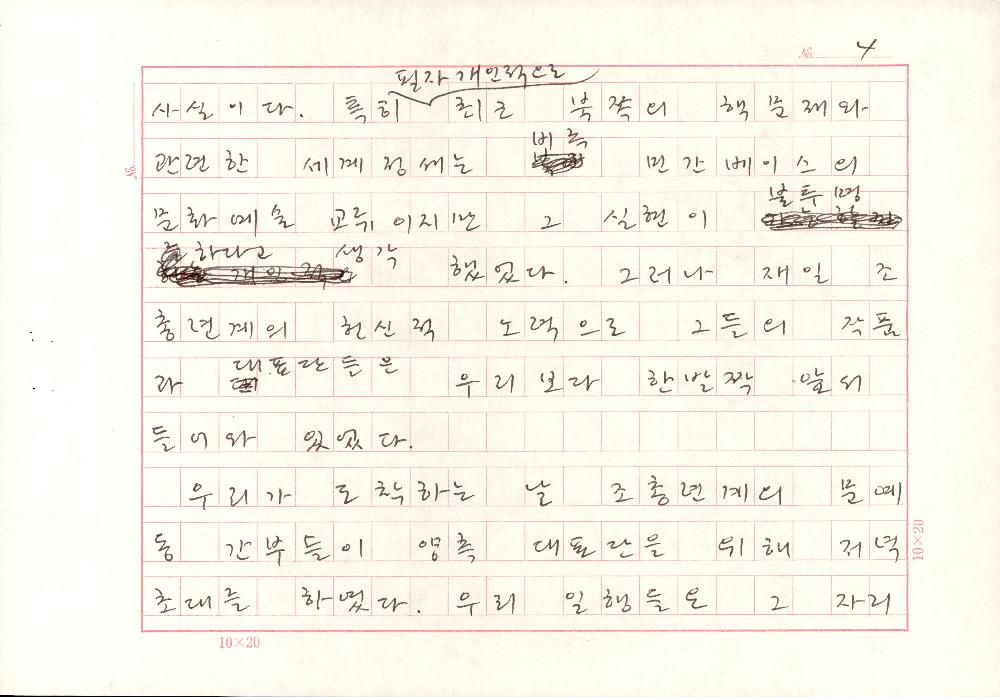 No. 4
필자 개인적으로
사실이다. 특히 최근 북쪽의 핵문제와
비록
관련한 세계정세는 민간베이스의
불투명
문화예술 교류이지만 그 실현이
하다고 생각
했었다. 그러나 재일 조
총련계의 헌신적 노력으로 그들의 작품
대표단들은
과 우리보다 한발짝 앞서
들어와 있었다.
우리가 도착하는 날 조총련계의 문예
동 간부들이 양측 대표단을 위해 저녁
초대를 하였다. 우리 일행들은 그 자리
No.
10×20
10×20